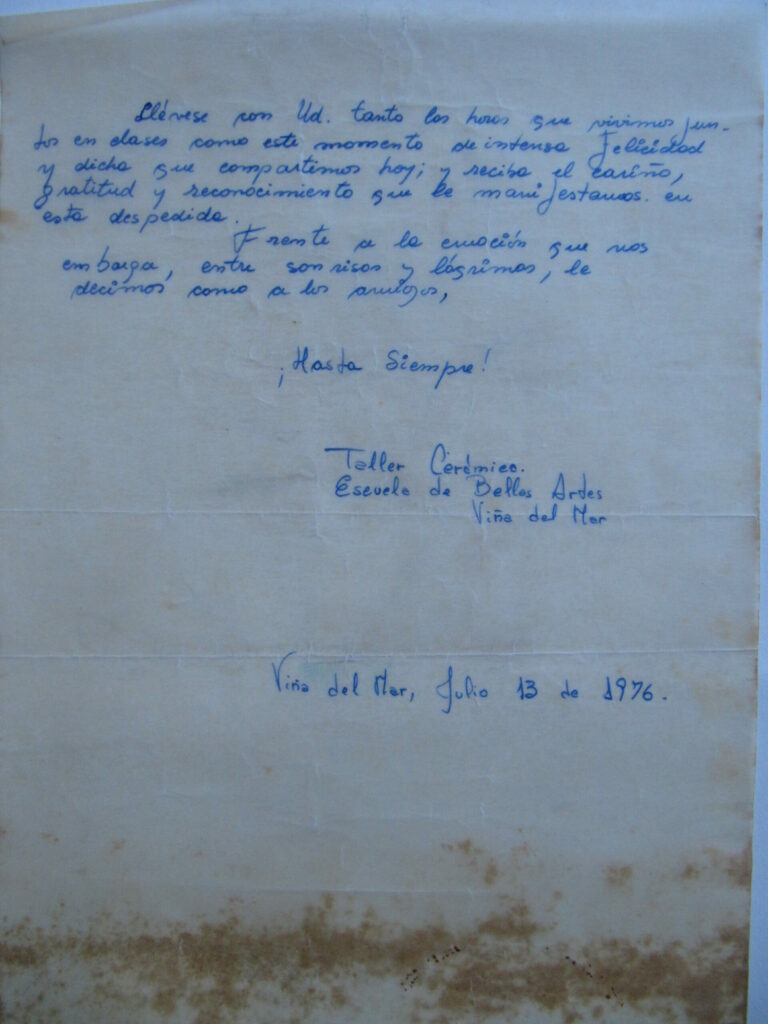 Llévese con Ud. tanto las horas que vivimos jun-
tos en clases como este momento de intensa felicidad
y dicha que compartimos hoy; y reciba el cariño,
gratitud y reconocimiento que le manifestamos. en
esta despedida.
Frente a la emoción que nos
embarga, entre sonrisas y lágrimas, le
decimos como a los amigos,
¡Hasta Siempre!
Taller Cerámica.
Escuela de Bellas Artes
Viña del Mar
Viña del Mar, Julio 13 de 1976.